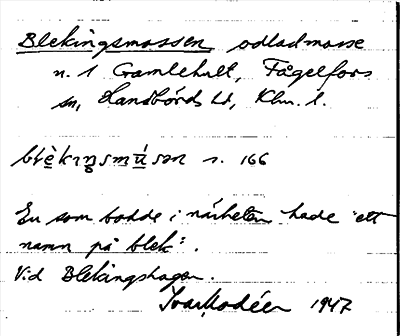 Blekingsmossen odladmosse
n. 1 Gamlehult, Fågelfors
sn, Handbörds hd, Klm. l.
blèkıŋsmúsən s. 166
En som bodde i närheten hade "ett
namn på blek".
Vid Blekingshagen.
Ivar Modéer 1947